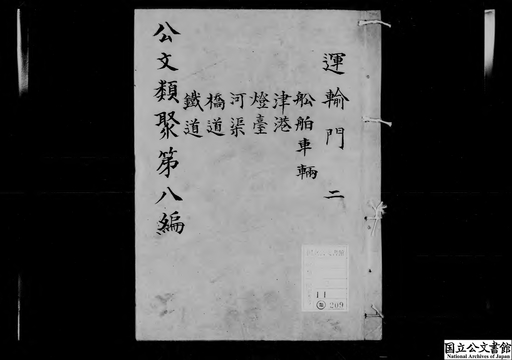 運輸門 二
船舶車輛
津港
燈臺
河渠
橋道
鐵道
公文類聚第八編
11
209
国立公文書館
National Archives of Japan